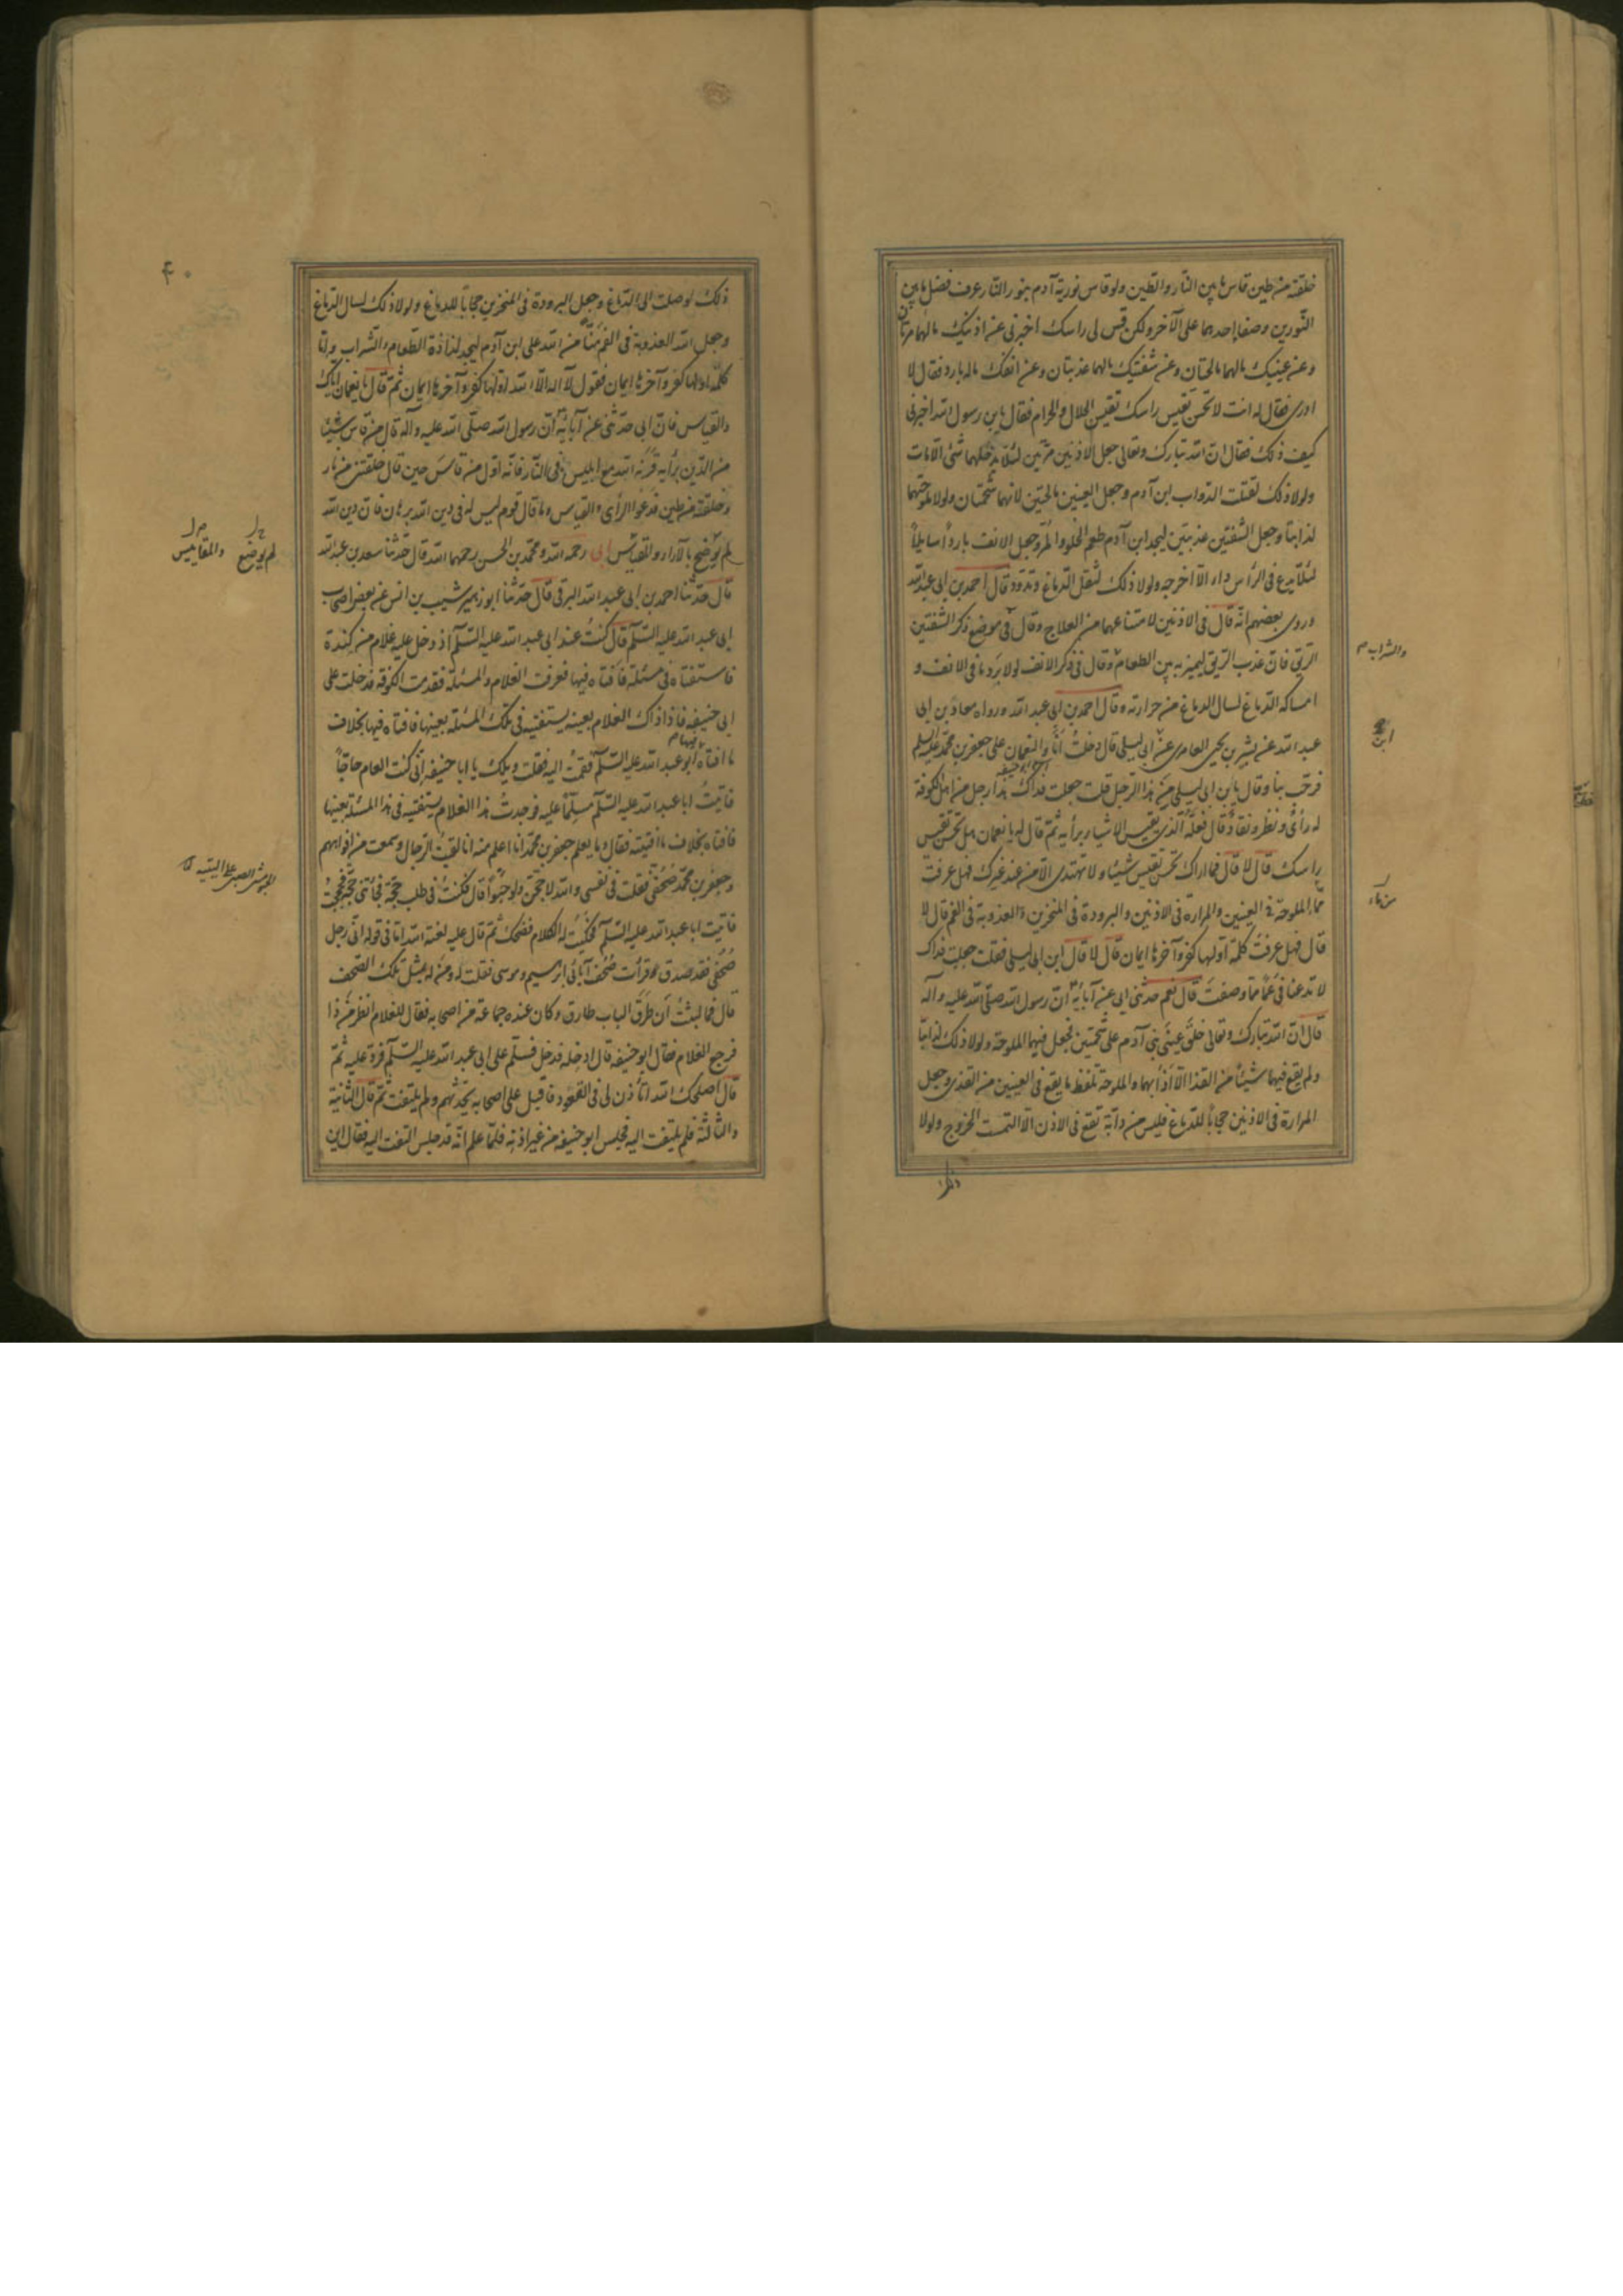 خلقته من طين قاس ما بين النّار والطّين ولو قاس نوريّة آدم بنور النّار عرف فضل ما بين
النّورين وصفا احدهما على الآخر ولكن قس لى راسك اخبرنى عن اذنيك ما لهما مرّتان
وعن عينيك ما لهما مالحتان وعن شفتيك ما لهما عذبتان وعن انفك ما له بارد فقال لا
ادرى فقال له انت لا تحسن تقيس راسك تقيس الحلال والحرام فقال يابن رسول الله اخبرنى
كيف ذلك فقال انّ الله تبارك وتعالى جعل الاذنين مرّتين لئلّا يدخلهما شئ الّا مات
ولولا ذلك لقتلت الدّواب ابن آدم وجعل العينين مالحتين لانهما شحمتان ولولا ملوحتهما
لذابتا وجعل الشّفتين عذبتين ليجد ابن آدم طعم الحلو والمُرّ وجعل الانف بارداً سايلاً
لئلّا يدع فى الرّأس داء الّا اخرجه ولولا ذلك لثقل الدّماغ وتدوّد قال احمد بن ابى عبد الله
وروى بعضهم انّه قال فى الاذنين لامتناعهما من العلاج وقال فى موضع ذكر الشّفتين
الرّيق فانّ عذب الرّيق ليميّز به بين الطعام وقال فى ذكر الانف لولا بَرد ما فى الانف و
والشراب م
امساكه الدّماغ لسال الدماغ من حرارته وقال احمد بن ابى عبد الله ورواه معاذ بن ابى
عبد الله عن بشير بن يحيى العامرى عن ابى ليلى قال دخلتُ أنَا والنعمان على جعفر بن محمّد عليه السلم
ابن
فرحّب بنا وقال يابن ابى ليلى مَن هذا الرّجل قلت جعلت فداك هذا رجل من اهل الكوفة
له رأىٌ ونظر ونقاد قال فلعلّه الّذى يقيس الاشياء برأيه ثمّ قال له يا نعمان هل تحسن تقيس
راسك قال لا قال فما اراك تحسن تقيس شيئاً ولا تهتدى الّا من عند غيرك فهل عرفت
ممّا الملوحة فى العينين والمرارة فى الاذنين والبرودة فى المنخرين والعذوبة فى الفم قال لا
قال فهل عرفتَ كلمة اوّلها كفر وآخرها ايمان قال لا قال ابن ابى ليلى فقلت جعلت فداك
لا تدعنا فى عمًا ممّا وصفتَ قال نعم حدثنى ابى عن آبائه انّ رسول الله صلى الله عليه وآله
قال انّ الله تبارك وتعالى خلق عينَى بنى آدم على شحمتين فجعل فيهما الملوحة ولولا ذلك لذابتا
ولم يقع فيهما شيئاً من القذا الّا أذابهما والملوحة تلفظ ما يقع فى العينين من القذى وجعل
المرارة فى الاذنين حجاباً للدّماغ فليس من دآبّة تقع فى الاذن الّا التمست الخروج ولولا
ذلك
۴۰
ذلك لوصلت الى الدّماغ وجعل البرودة فى المنخرين حجاباً للدماغ ولولا ذلك لسال الدّماغ
وجعل الله العذوبة فى الفم مَنّاً من الله على ابن آدم ليجد لذاذة الطّعام والشّراب وامّا
كلمة اوّلها كفر وآخرها ايمان فقول لا اله الّا الله اوّلها كفر وآخرها ايمان ثمّ قال يا نعمان اياك
والقياس فانّ ابى حدّثنى عن آبائه أنّ رسول الله صلّى الله عليه وآله قال من قاس شيئاً
من الدّين برأيه قَرَنَه الله مع ابليس فى النّار فانّه اوّل من قاسَ حين قال خلقتنى من نار
وخلقته من طين فدعُوا الرّأى والقياس وما قال قوم ليس له فى دين الله برهان فانّ دين الله
لم يوضع بالآراء والمقاييس ابى رحمه الله ومحمّد بن الحسن رحمهما الله قال حدّثنا سعد بن عبد الله
لم يوضع والمقاييس
قال حدّثنا احمد بن ابى عبد الله البرقى قال حدّثنا ابو زهير شبيب بن انس عن بعض اصحاب
ابى عبد الله عليه السّلم قال كنتُ عند ابى عبد الله عليه السّلم اذ دخل عليه غلام من كِندة
فاستفتاه فى مسئلة فأفتاه فيها فعرفت الغلام والمسئلة فقدمت الكوفة فدخلت على
ابى حنيفه فاذا ذاك الغلام بعينه يستفتيه فى تلك المسئلة بعينها فافتاه فيها بخلاف
ما افتاه ابو عبد الله عليه السّلم فقمتُ اليه فقلت ويلك يا ابا حنيفه انّى كنت العام حاجّاً
فاتيتُ ابا عبد الله عليه السّلم مسلّماً عليه فوجدتُ هذا الغلام يستفتيه فى هذا المسئلة بعينها
فافتاه بخلاف ما افتيته فقال وما يعلم جعفر بن محمّد انا اعلم منه انا لقيتُ الرّجال وسمعت من افواههم
وجعفر بن محمّد صُحُفىٌّ فقلت فى نفسى والله لاحجّنّ ولو حَبواً قال فكنتُ فى طلب حجّة فجائتنى حجّة فحججتُ
فاتيت ابا عبد الله عليه السّلم فحكيتُ له الكلام فضحك ثمّ قال عليه لعنة الله امّا فى قوله انّى رجل
صُحُفى فقد صدق قرأت صُحُف آبائى ابرهيم وموسى فقلت له ومَن له بمثل تلك الصّحف
قال فما لبثتُ أن طَرَق الباب طارق وكان عنده جماعة من اصحابه فقال للغلام انظر مَن ذا
فرجع الغلام فقال ابو حنيفه قال ادخله فدخل فسلّم على ابى عبد الله عليه السّلم فردّ عليه ثمّ
قال اصلحك الله أتأذن لى فى القعود فاقبل على اصحابه يحدّثهم ولم يلتفت ثمّ قال الثّانية
والثّالثة فلم يلتفت اليه فجلس ابو حنيفه من غير اذنه فلمّا علم انّه قد جلس التفت اليه فقال اين